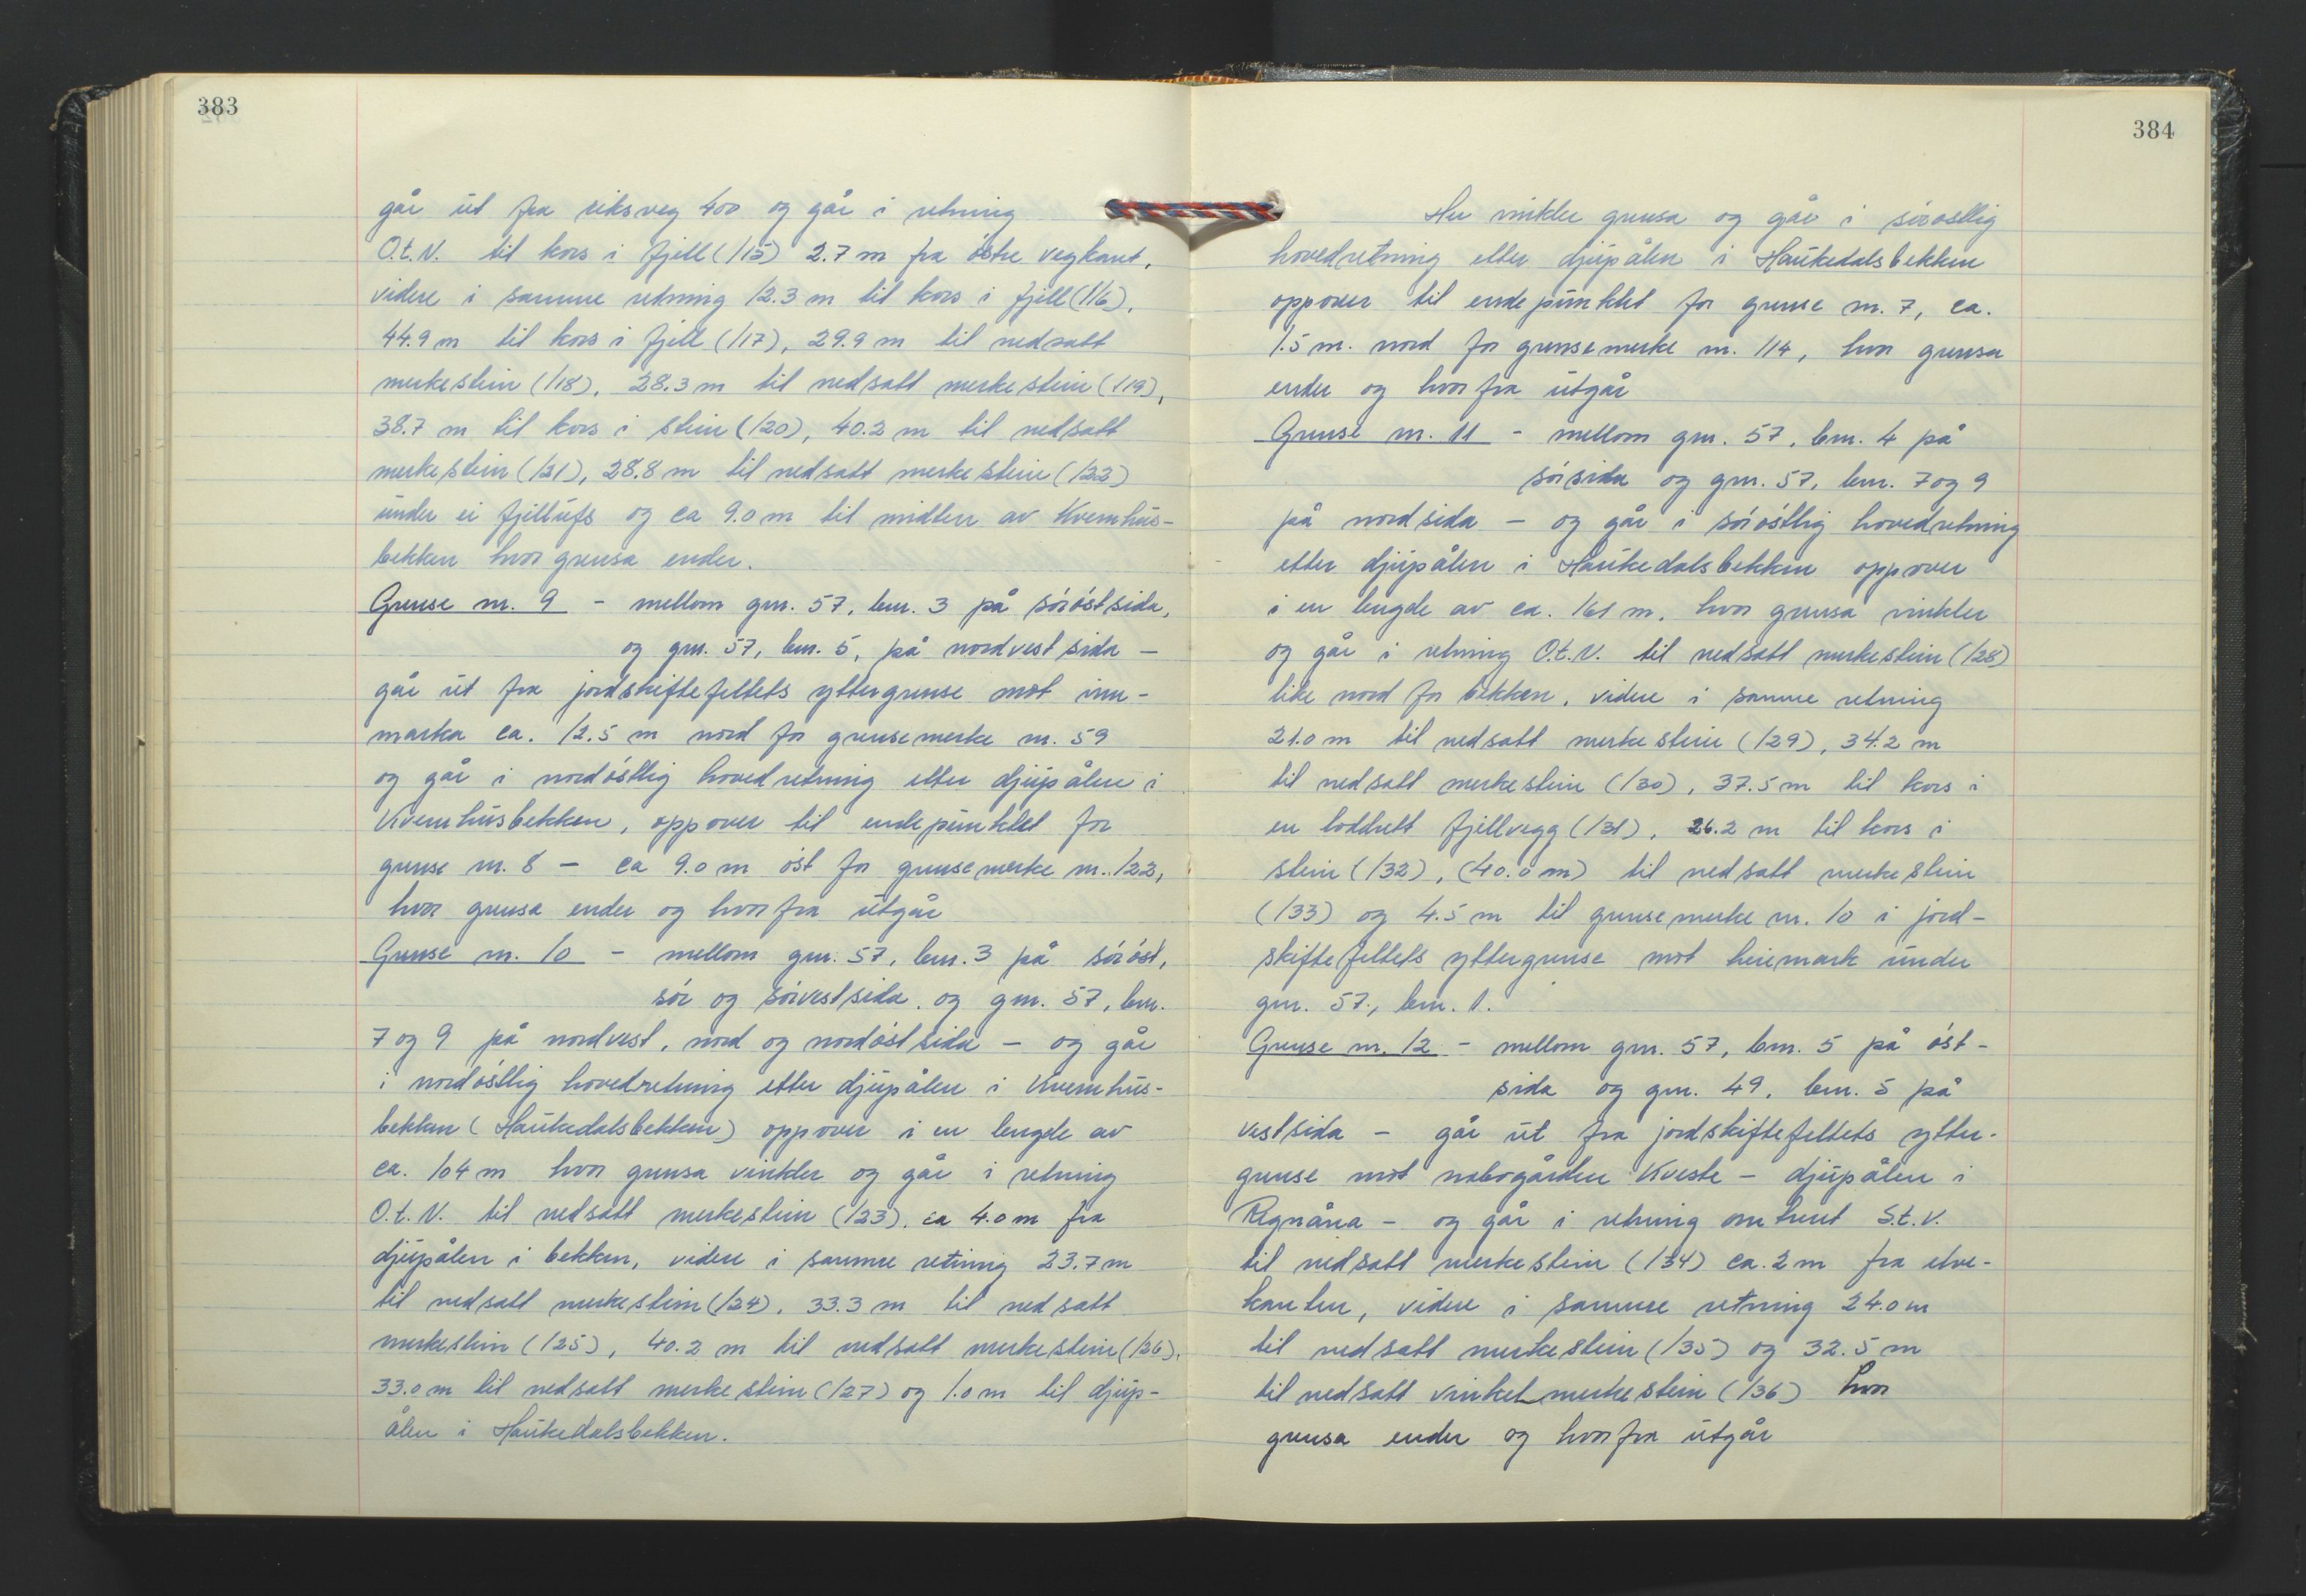 383
går ut fra riksveg 400 og går i retning
O.t.N. til kors i fjell (115) 2.7 m fra østre vegkant,
videre i samme retning 12.3 m til kors i fjell (116),
44.9 m til kors i fjell (117), 29.9 m til nedsatt
merkestein (118), 28.3 m til nedsatt merkestein (119),
38.7 m til kors i stein (120), 40.2 m til nedsatt
merkestein (121), 28.8 m til nedsatt merkestein (122)
under ei fjellufs og ca 9.0 m til midten av Kvernhus-
bekken hvor grensa ender.
Grense nr. 9 - mellom gnr. 57, bnr. 3 på sørøstsida,
og gnr. 57, bnr. 5, på nordvestsida -
går ut fra jordskiftefeltets yttergrense mot inn-
marka ca. 12.5 m nord for grensemerke nr. 59
og går i nordøstlig hovedretning etter djupålen i
Kvernhusbekken, oppover til endepunktet for
grense nr. 8 - ca 9.0 m øst for grensemerke nr. 122,
hvor grensa ender og hvorfra utgår
Grense nr. 10 - mellom gnr. 57, bnr. 3 på sørøst,
sør og sørvestsida, og gnr. 57, bnr.
7 og 9 på nordvest, nord og nordøstsida - og går
i nordøstlig hovedretning etter djupålen i Kvernhus-
bekken (Haukedalsbekken) oppover i en lengde av
ca. 104 m hvor grensa vinkler og går i retning
O.t.N. til nedsatt merkestein (123), ca 4.0 m fra
djupålen i bekken, videre i samme retning 23.7 m
til nedsatt merkestein (124), 33.3 m til nedsatt
merkestein (125), 40.2 m til nedsatt merkestein (126),
33.0 m til nedsatt merkestein (127) og 1.0 m til djup-
ålen i Haukedalsbekken.
384
Her vinkler grensa og går i sørøstlig
hovedretning etter djupålen i Haukedalsbekken
oppover til endepunktet for grense nr. 7, ca.
1.5 m. nord for grensemerke nr. 114, hvor grensa
ender og hvorfra utgår
Grense nr. 11 - mellom gnr. 57, bnr. 4 på
sørsida og gnr. 57, bnr. 7 og 9
på nordsida - og går i sørøstlig hovedretning
etter djupålen i Haukedalsbekken oppover
i en lengde av ca. 161 m, hvor grensa vinkler
og går i retning O.t.N. til nedsatt merkestein (128)
like nord for bekken, videre i samme retning
21.0 m til nedsatt merkestein (129), 34.2 m
til nedsatt merkestein (130), 37.5 m til kors i
en loddrett fjellvegg (131), 26.2 m til kors i
stein (132), (40.0 m) til nedsatt merkestein
(133) og 4.5 m til grensemerke nr. 10 i jord-
skiftefeltets yttergrense mot heimark under
gnr. 57, bnr. 1.
Grense nr. 12 - mellom gnr. 57, bnr. 5 på øst-
sida og gnr. 49, bnr. 5 på
vestsida - går ut fra jordskiftefeltets ytter-
grense mot nabogården Kveste - djupålen i
Rignåna - og går i retning omtrent S.t.V.
til nedsatt merkestein (134) ca. 2 m fra elve-
kanten, videre i samme retning 24.0 m
til nedsatt merkestein (135) og 32.5 m
til nedsatt vinkelmerkestein (136) hvor
grensa ender og hvorfra utgår